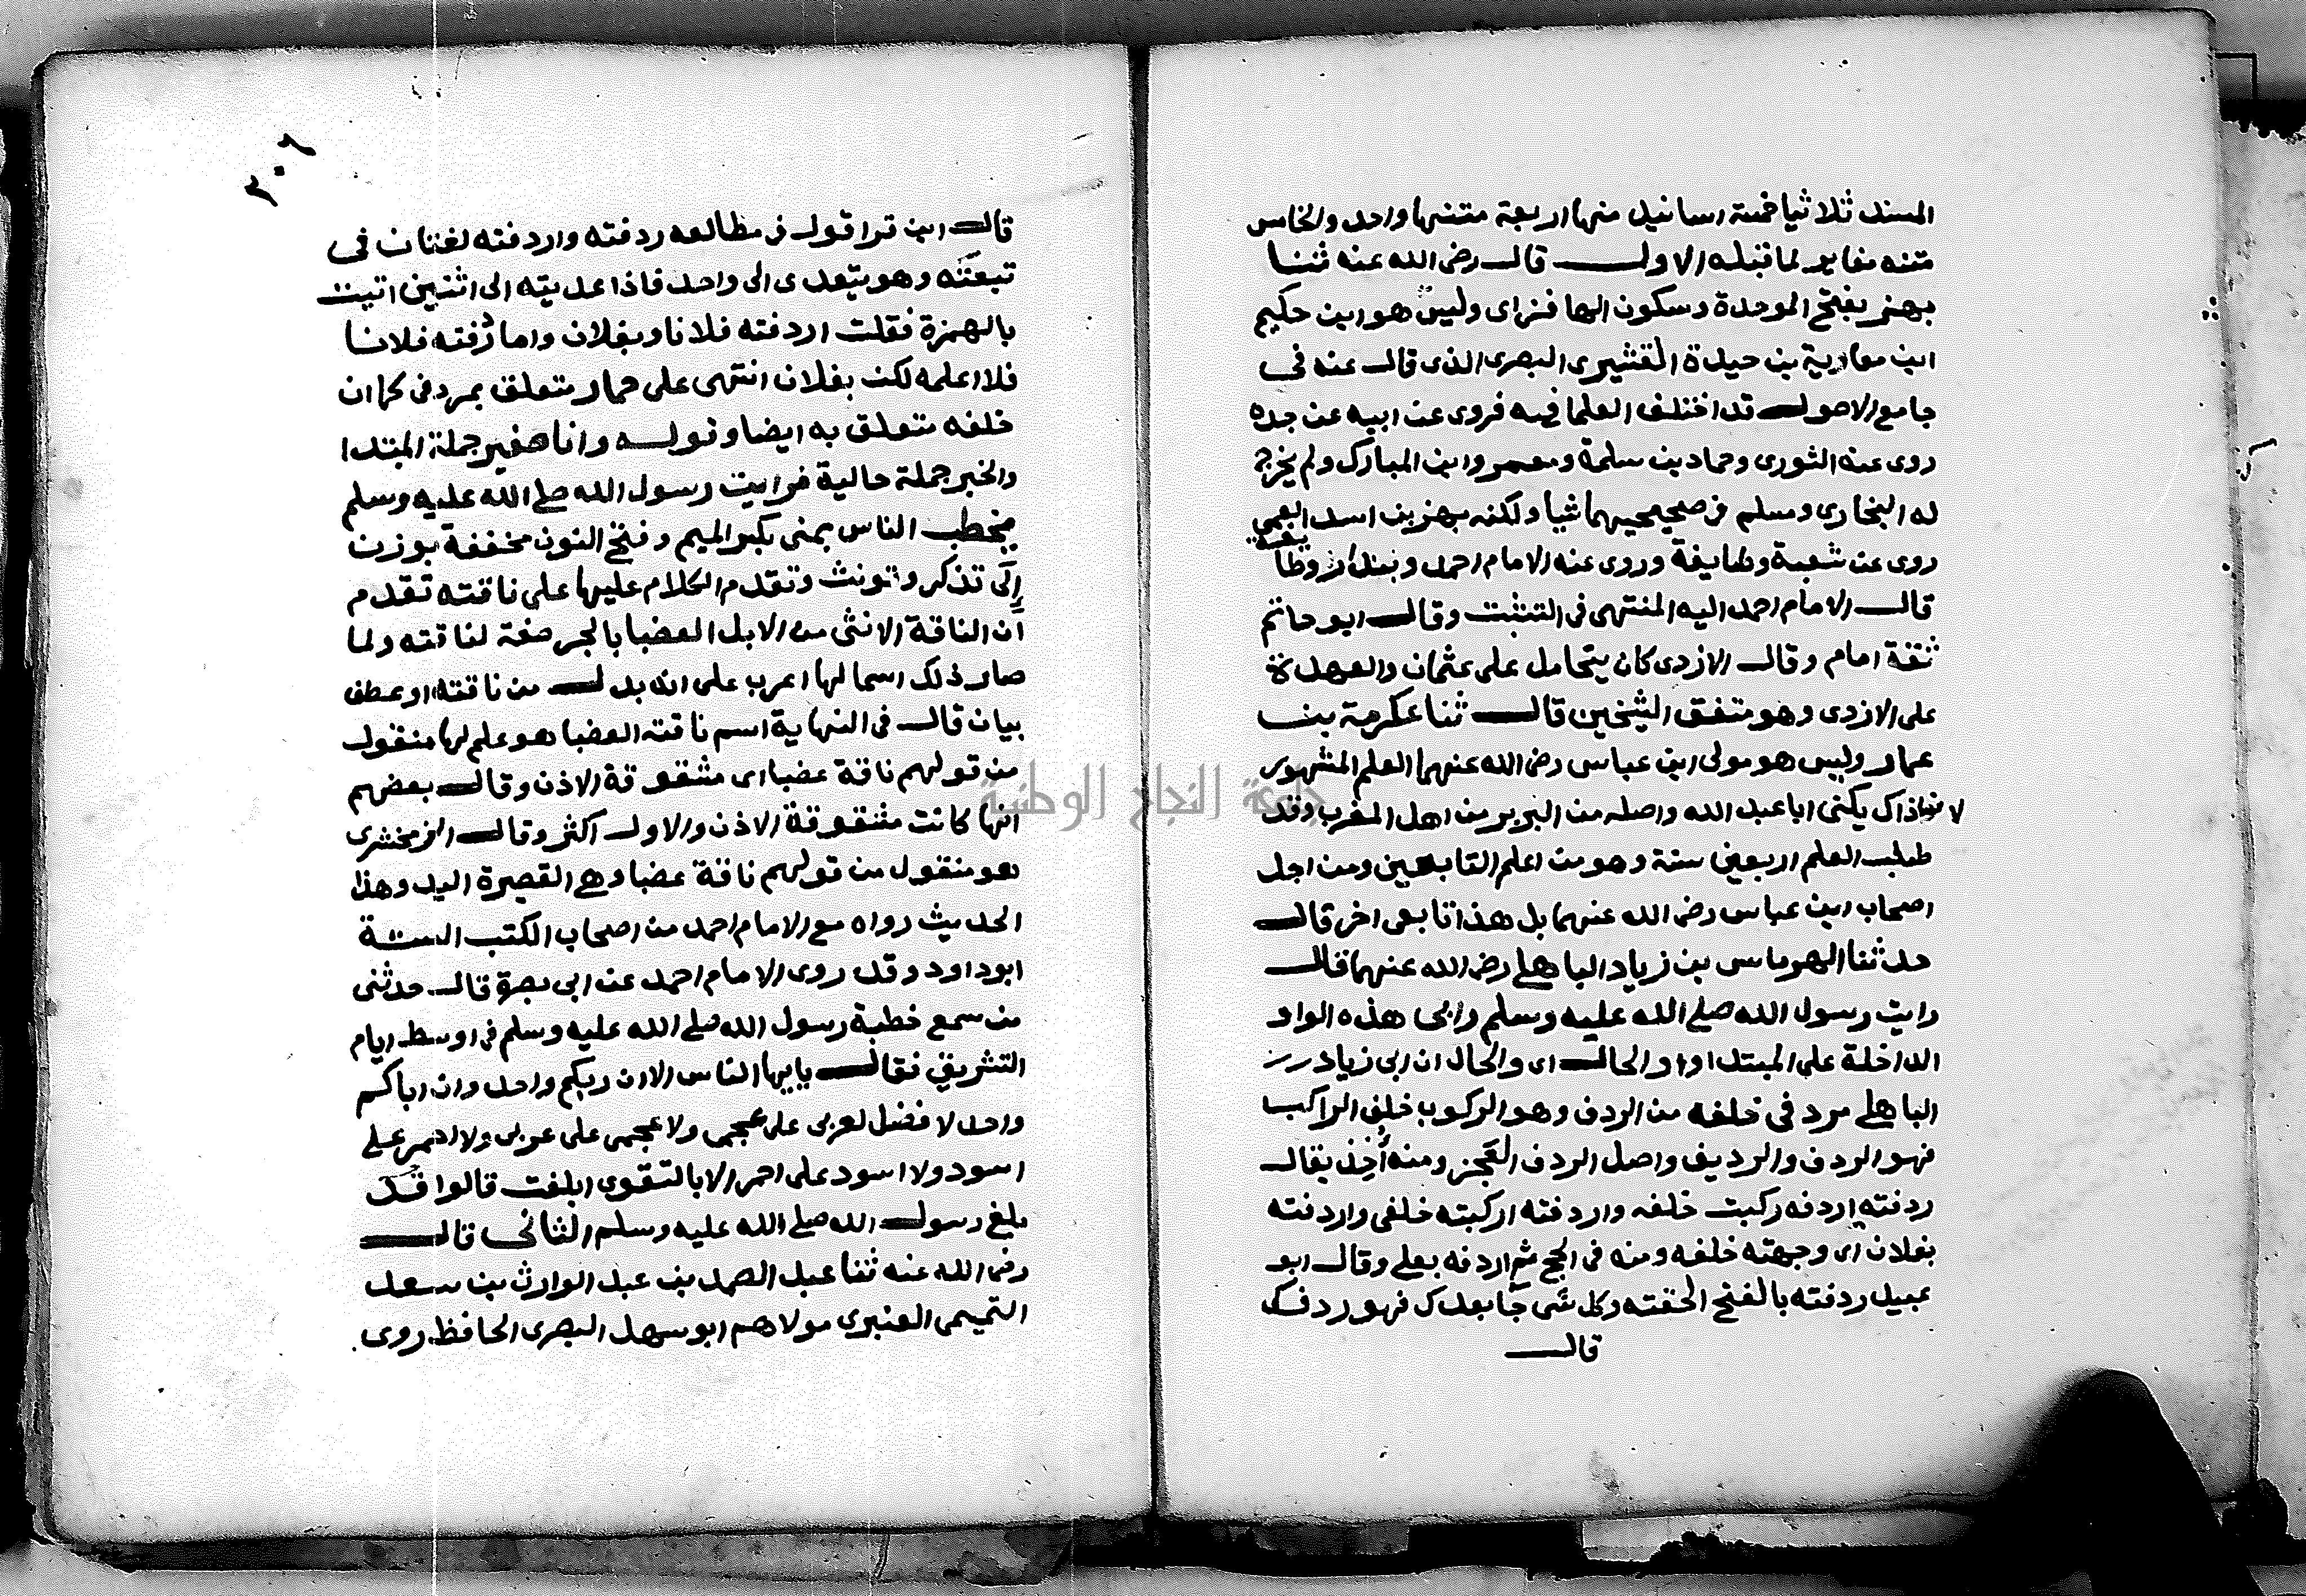 المسند ثلاثيا خمسة اسانيد منها اربعة متنها واحد والخامس
متنه مغاير لما قبله الاول قال رضي الله عنه ثنا
بهز بفتح الموحدة وسكون الها فزاي وليس هو ابن حكيم
ابن معاوية بن حيدة القشيري البصري الذي قال عنه في
جامع الاصول قد اختلف العلما فيه فروى عن ابيه عن جده
روى عنه الثوري وحماد بن سلمة ومعمر وابن المبارك ولم يخرج
له البخاري ومسلم في صحيحيهما شيا ولكنه بهز بن اسد العمي
روى عن شعبة وطايفة وروى عنه الامام احمد وبندار وطا
يفة
قال الامام احمد اليه المنتهى في التثبت وقال ابو حاتم
ثقة امام وقال الازدي كان يتحامل على عثمان والعهدة
على الازدي وهو متفق الشيخين قال ثنا عكرمة بن
عمار وليس هو مولى ابن عباس رضي الله عنهما العلم المشهور
لان ذاك يكنى ابا عبد الله واصله من البربر من اهل المغرب وقد
طلب العلم اربعين سنة وهو من اعلم التابعين ومن اجل
اصحاب ابن عباس رضي الله عنهما بل هذا تابعي اخر قال
حدثنا الهرماس بن زياد الباهلي رضي الله عنهما قال
رايت رسول الله صلى الله عليه وسلم وابي هذه الواو
الداخلة على المبتدا واو الحال اي والحال ان ابي زياد
الباهلي مردفي خلفه من الردف وهو الركوب خلف الراكب
فهو الردف والرديف واصل الردف العجز ومنه أخذ يقال
ردفته اردفه ركبت خلفه واردفته اركبته خلفي واردفته
بفلان اي وجهته خلفه ومنه في الحج ثم اردفه بعلي وقال ابو
عبيد ردفته بالفتح الحقته وكل شي جا بعدك فهو ردفك
قال
٣٠٦
قال ابن قراقول في مطالعه ردفته واردفته لغتان في
تبعته وهو يتعدى الى واحد فاذا عديته الى اثنين اتيت
بالهمزة فقلت اردفته فلانا وبفلان واما ردفته فلانا
فلا اعلمه لكن بفلان انتهى على حمار متعلق بمردفي كما ان
خلفه متعلق به ايضا وقوله وانا صغير جملة المبتدا
والخبر جملة حالية فرايت رسول الله صلى الله عليه وسلم
يخطب الناس بمنى بكسر الميم وفتح النون مخففة بوزن
إلى تذكر وتونث وتقدم الكلام عليها على ناقته تقدم
أن الناقة الانثى من الابل العضبا بالجر صفة لناقته ولما
صار ذلك اسما لها اعرب على انه بدل من ناقته او عطف
بيان قال في النهاية اسم ناقته العضبا هو علم لها منقول
من قولهم ناقة عضبا اي مشقوقة الاذن وقال بعضهم
انها كانت مشقوقة الاذن والاول اكثر وقال الزمخشري
هو منقول من قولهم ناقة عضبا وهي القصيرة اليد وهذا
الحديث رواه مع الامام احمد من اصحاب الكتب الستة
ابو داود وقد روى الامام احمد عن ابي نضرة قال حدثني
من سمع خطبة رسول الله صلى الله عليه وسلم في اوسط ايام
التشريق فقال يايها الناس الا ان ربكم واحد وان اباكم
واحد لا فضل لعربي على عجمي ولا عجمي على عربي ولا احمر على
اسود ولا اسود على احمر الا بالتقوى ابلغت قالوا قد
بلغ رسول الله صلى الله عليه وسلم الثاني قال
رضي الله عنه ثنا عبد الصمد بن عبد الوارث بن سعد
التميمي العنبري مولاهم ابو سهل البصري الحافظ روى
جامعة النجاح الوطنية